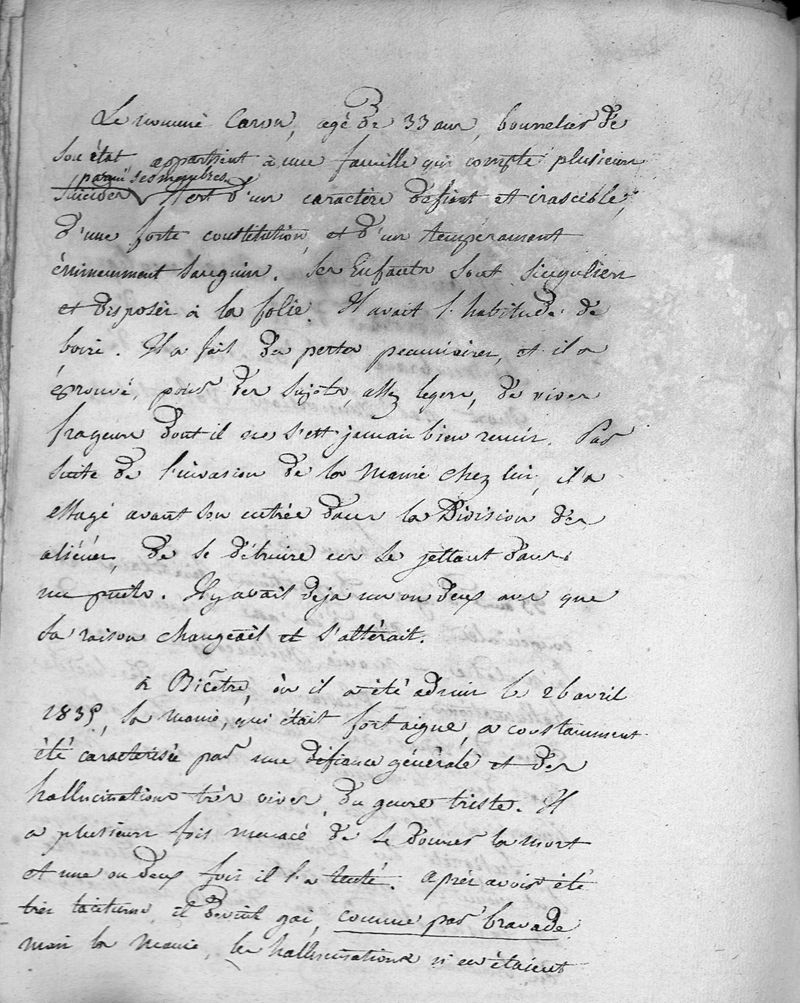 Le nommé Caron, agé de 33 ans, bourrelier de
son état appartient à une famille qui compte plusieurs
parmi ses membres.
suicides Il est d'un caractère défiant et irascible,
d'une forte constitution, et d'un tempérament
éminemment sanguin. Ses Enfants sont singuliers
et disposés à la folie. Il avait l'habitude de
boire. Il a fait des pertes pecuniaires, et il a
éprouvé, pour des sujets, assez legers, de vives
frayeurs dont il ne s'est jamais bien remis. Par
suite de l'invasion de la manie chez lui, il a
essayé avant son entrée dans la Division des
aliénés, de se détruire en se jettant dans
un puits. Il y avait deja un ou deux ans que
sa raison changeait et s'altérait.
à Bicêtre, où il a été admis le 26 avril
1835, la manie, qui était fort aigue, a constamment
été caracterisée par une défiance générale et des
hallucinations très vives, du genre triste. Il
a plusieurs fois menacé de se donner la mort
et une ou deux fois il l'a tenté. Après avoir été
très taciturne, il devint gai, comme par bravade
mais la manie, les hallucinations n'en étaient